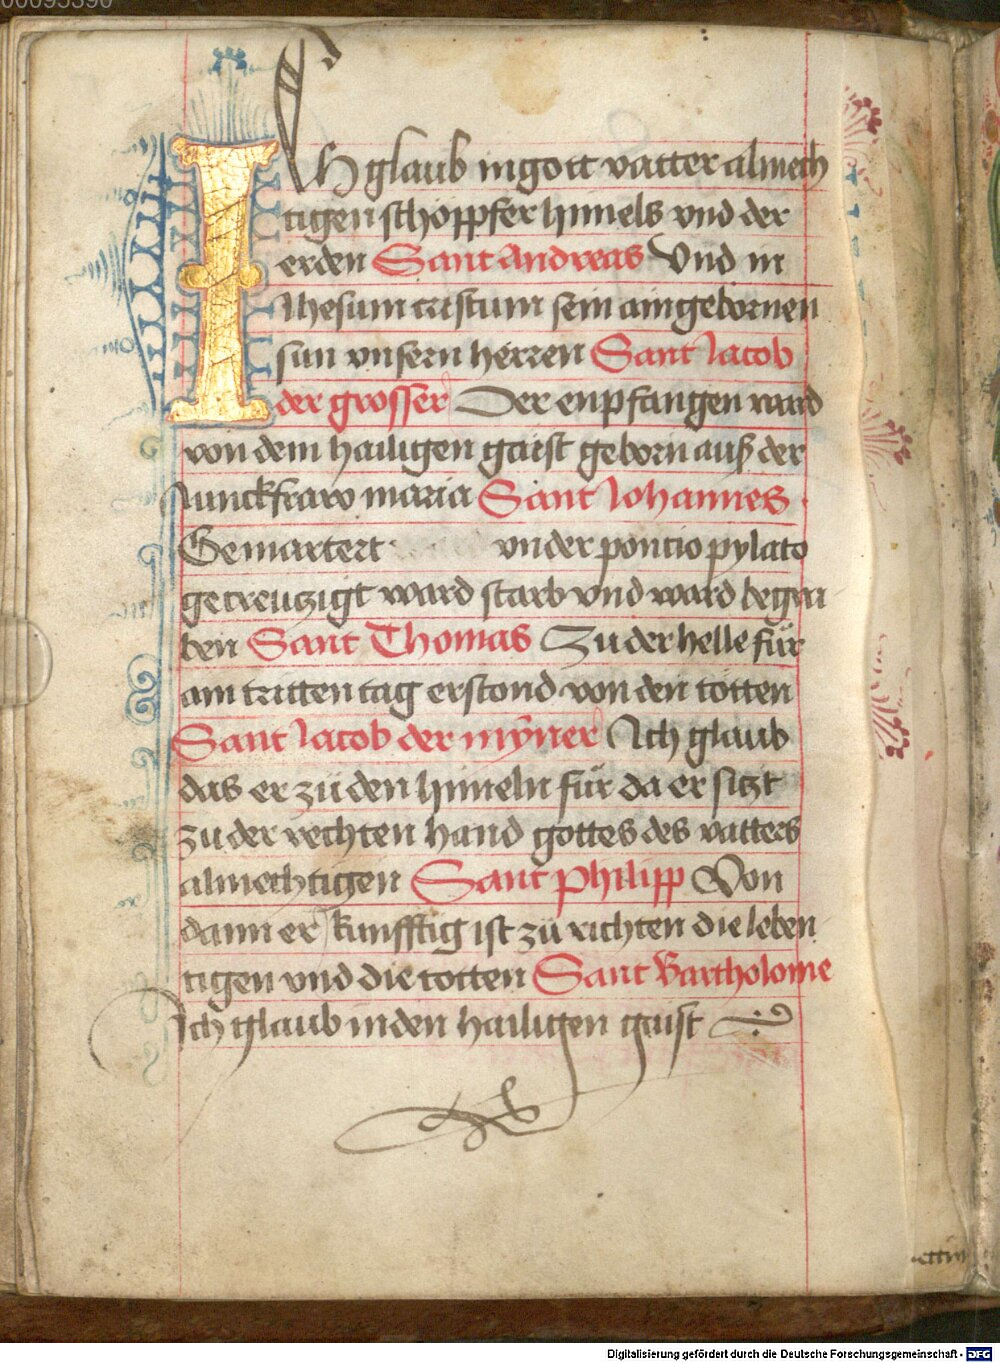 00095390
ICH glaub in gott vatter almech
tigen schöpffer himels vnd der
erden Sant Andreas Vnd in
Jhesum cristum sein aingebornen
sun vnsern herren Sant Jacob
der grosser Der enpfangen ward
von dem hailigen gaist geborn auß der
Junckfraw maria Sant Johannes
Gemartert vnder poncio pylato
gecreutzigt ward starb vnd ward begra
ben Sant Thomas Zu der helle für
am tritten tag erstond von den totten
Sant Jacob der mÿner Ich glaub
das er zü den himeln für da er sitzt
zu der rechten hand gottes des vatters
almechtigen Sant philipp Von
dann er kunfftig ist zü richten die leben
tigen vnd die totten Sant Bartholome
Ich glaub in den hailigen gaist
Digitalisierung gefördert durch die Deutsche Forschungsgemeinschaft - DFG